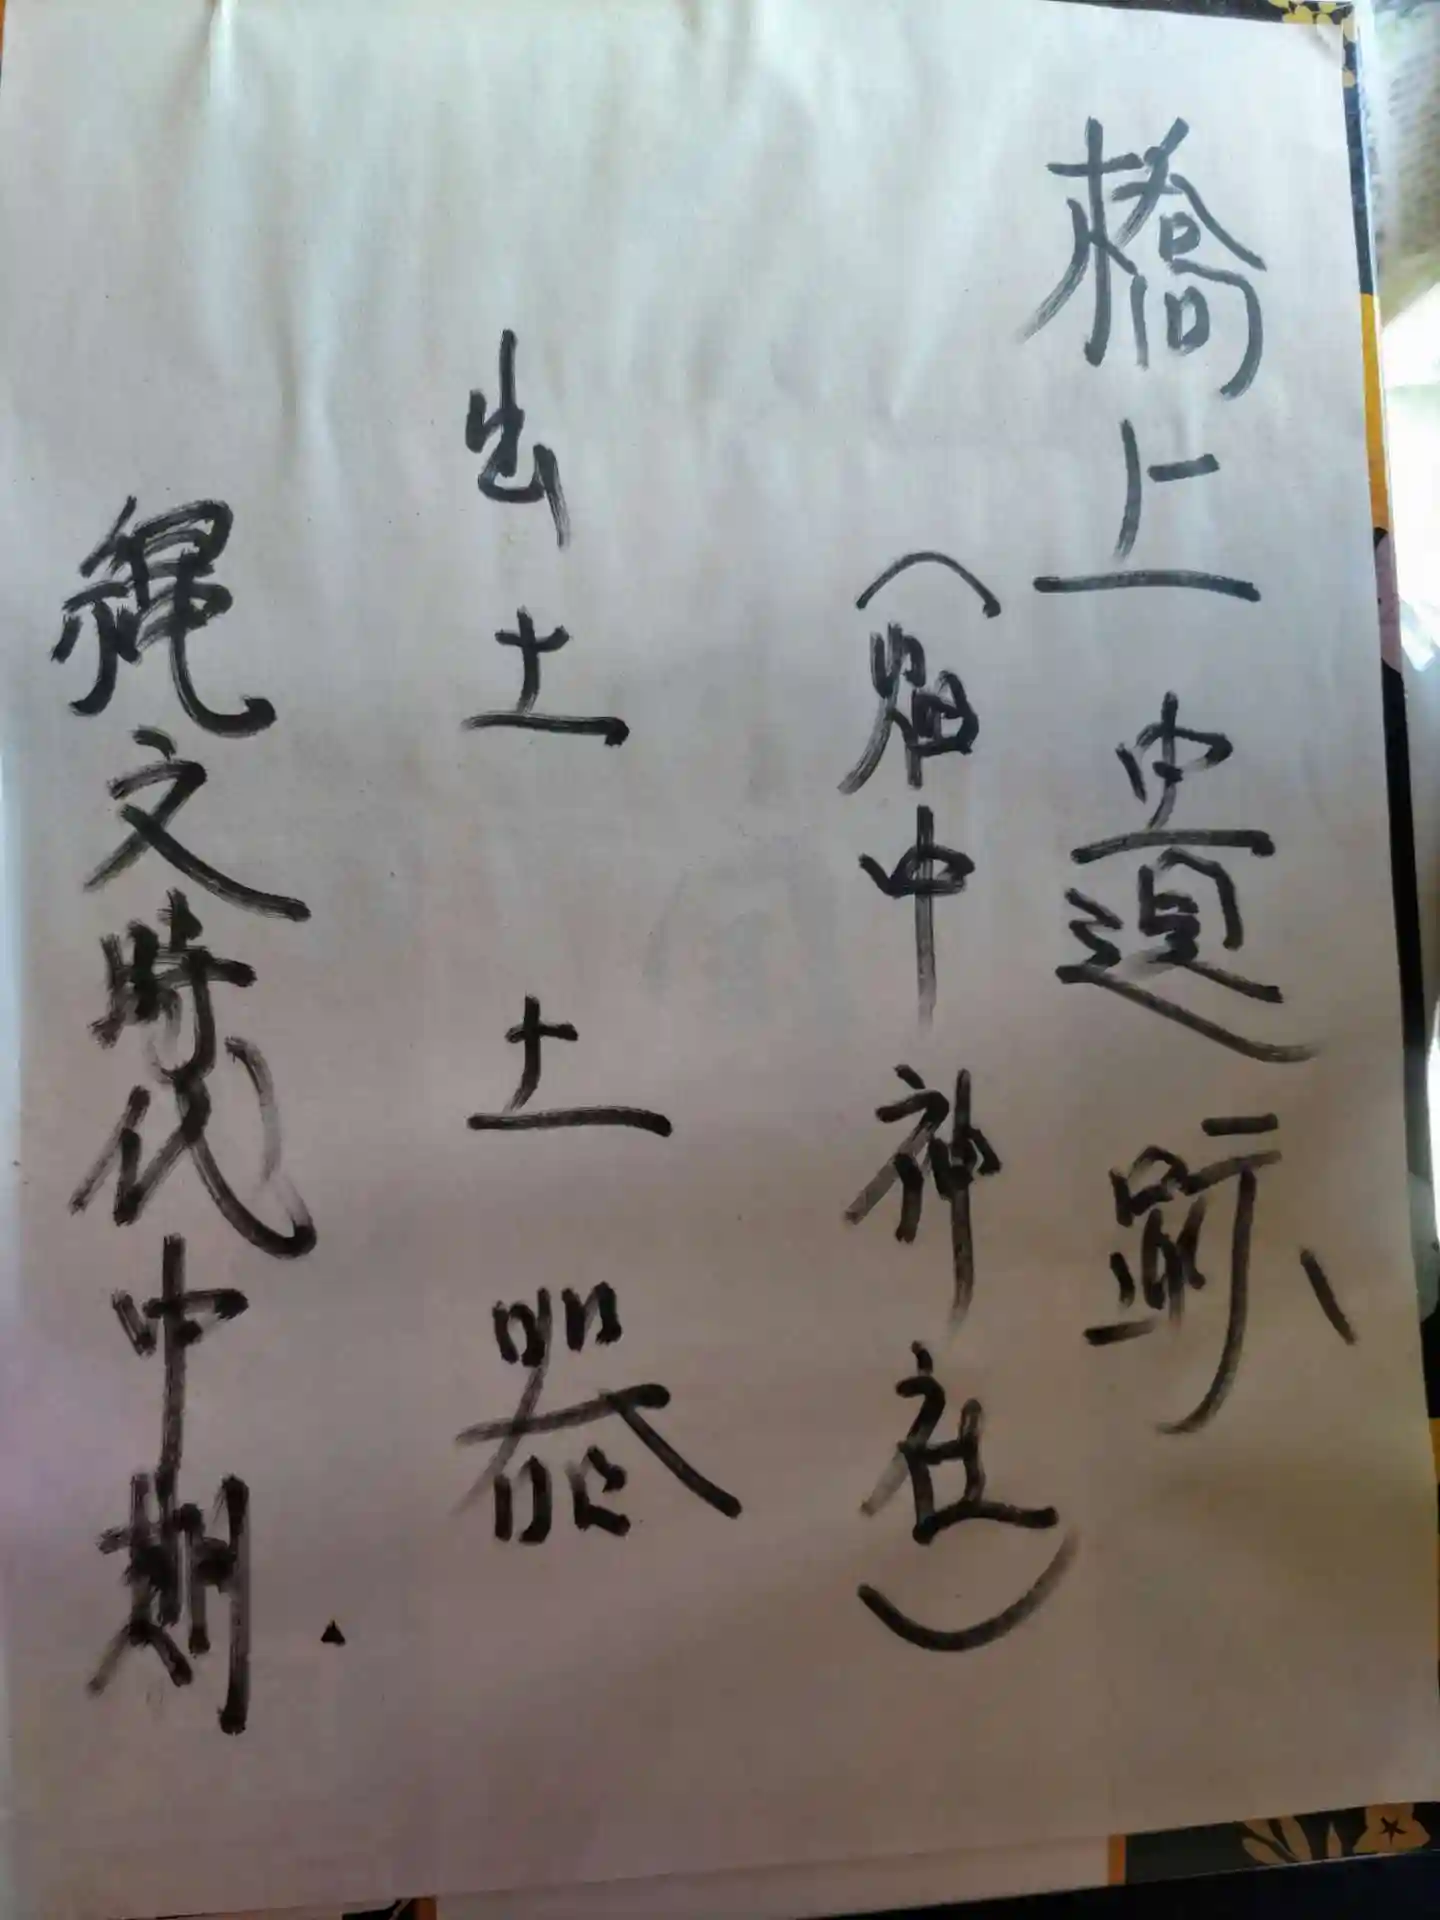 橋上遺跡
（畑中神社）
出土土器
縄文時代中期